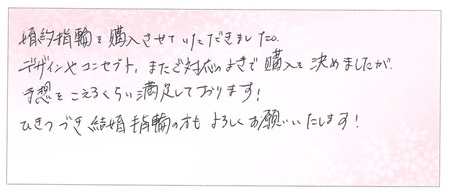 婚約指輪を購入させていただきました。
デザインやコンセプト、またご対応のよさで購入を決めましたが、
予想をこえるくらい満足しております!
ひきつづき結婚指輪の方もよろしくお願いいたします!